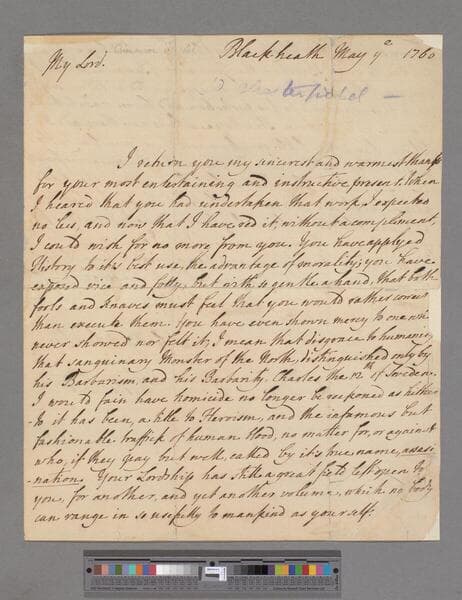 My Lord.
Blackheath May 9 1760
Chesterfield —
I return you my sincerest and warmest thanks
for your most entertaining and instructive present. When
I heard that you had undertaken that work, I expected
no less, and now that I have red it, without a compliment,
I cou'd wish for no more from you. You have apply'd
History to it's best use, the advantage of morality; you have
exposed vice and folly, but with so gentle a hand, that both
fools and Knaves must feel that you would rather correct
than execute them. You have even shown mercy to one who
never showed nor felt it; I mean that disgrace to humanity,
that sanguinary Monster of the North, distinguished only by
his Barbarism, and his Barbarity, Charles the 12th of Sweden.
I wou'd fain have homicide no longer be as hither-
to it has been, a title to Herroism, and the infamous but
fashionable traffick of human blood, no matter for, or against
who, if they pay but well, called by it's true name, assassi-
nation. Your Lordship has still a great field left open to
you, for another, and yet another volume, which no body
can range in so usefully to mankind as yourself: